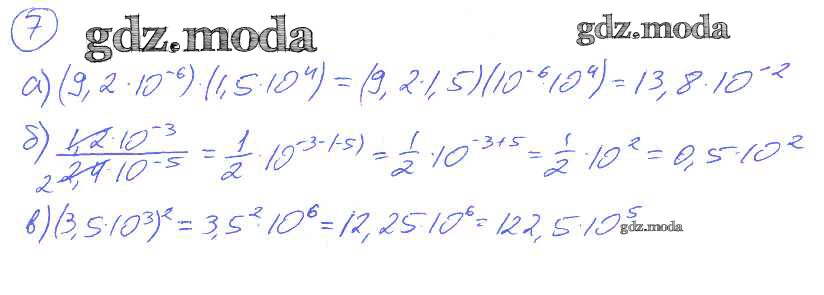 7 gdz.moda gdz.moda
а) (9,2·10⁻⁶)·(1,5·10⁴) = (9,2·1,5)(10⁻⁶·10⁴) = 13,8·10⁻²
б) 1,2·10⁻³ / 2 2,4·10⁻⁵ = 1/2·10⁻³⁻⁽⁻⁵⁾ = 1/2·10⁻³⁺⁵ = 1/2·10² = 0,5·10²
в) (3,5·10³)² = 3,5²·10⁶ = 12,25·10⁶ = 122,5·10⁵ gdz.moda